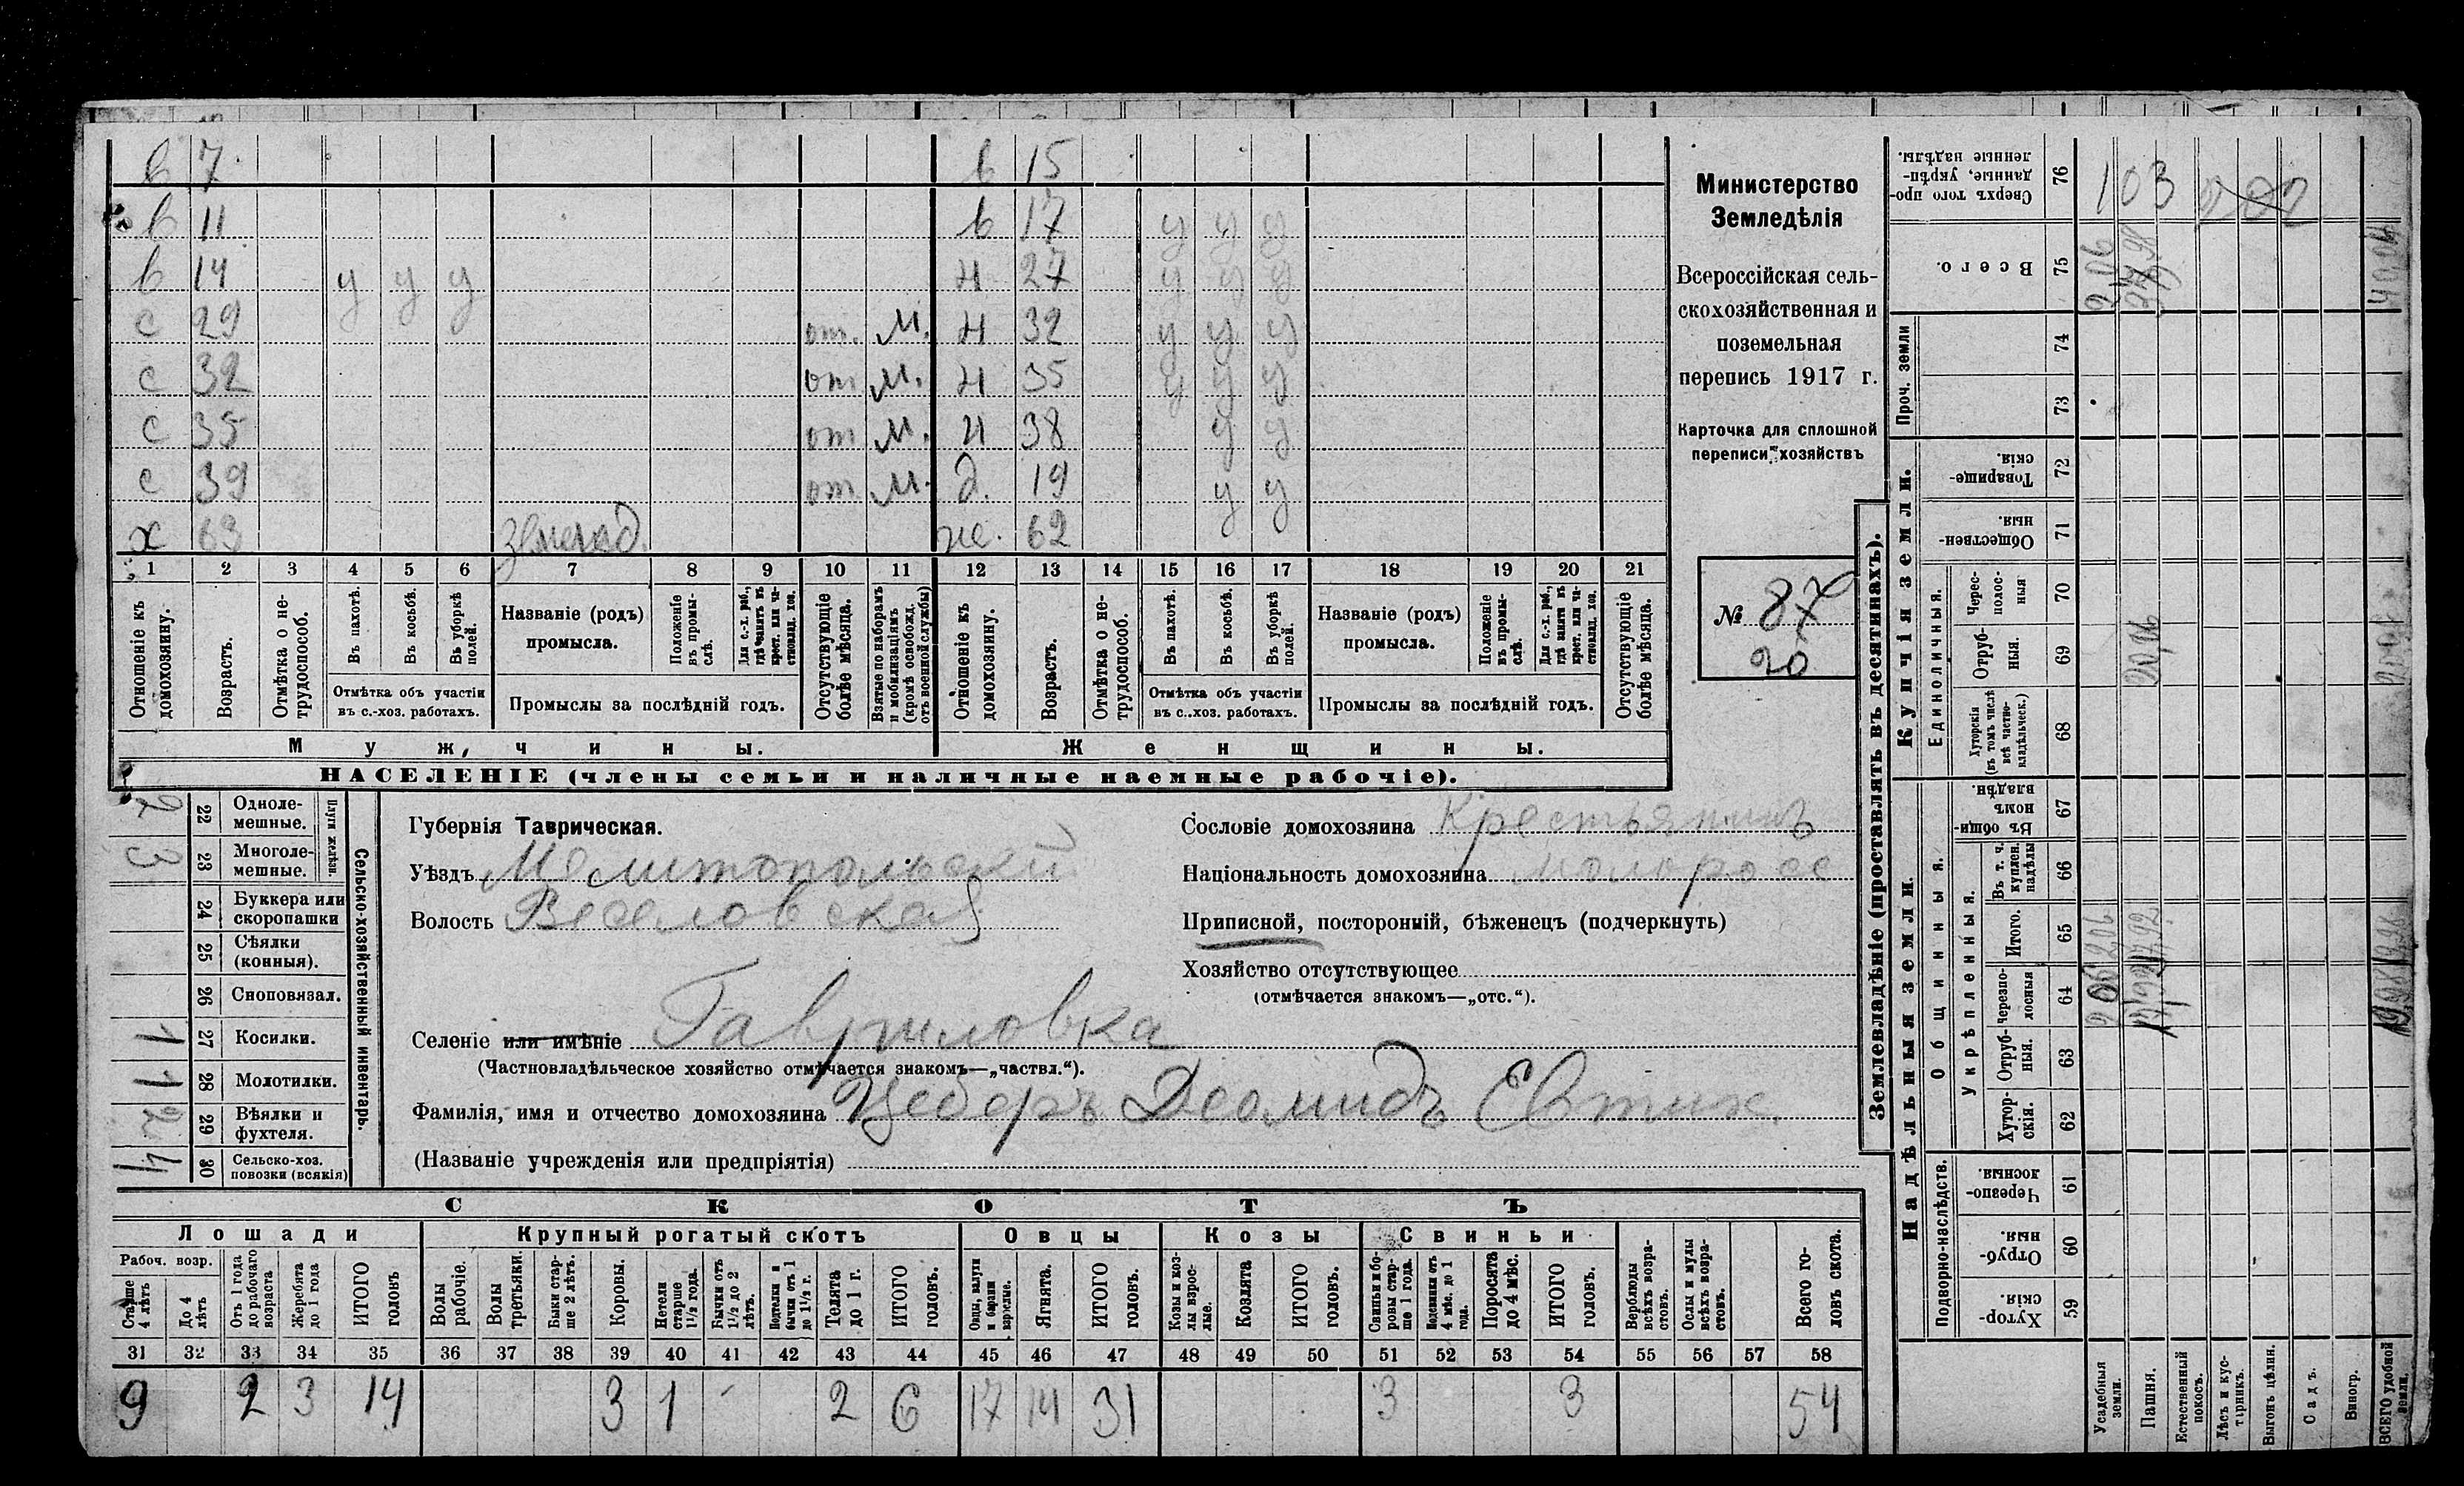 в 7 в 15
в 11 в 17 у у у
в 14 у у у н 27 у у у
с 29 от. м. н 32 у у у
с 32 от м. н 35 у у у
с 35 от м. н 38 у у
с 39 от м. д. 19 у у
х 63 землед. же. 62
1 2 3 4 5 6 7 8 9 10 11 12 13 14 15 16 17 18 19 20 21
Отношеніе къ домохозяину.
Возрастъ.
Отмѣтка о не-трудоспособ.
Въ пахотѣ.
Въ косьбѣ.
Въ уборкѣ полей.
Отмѣтка объ участіи
въ с.-хоз. работахъ.
Названіе (родъ)
промысла.
Положеніе въ промы-слѣ.
Для с.-х. раб., гдѣ занятъ въ крест. или ча-стновлад. хоз.
Промыслы за послѣдній годъ.
Отсутствующіе болѣе мѣсяца.
Взятые по наборамъ и мобилизаціямъ (кромѣ освобожд. отъ военной службы)
Отношеніе къ домохозяину.
Возрастъ.
Отмѣтка о не-трудоспособ.
Въ пахотѣ.
Въ косьбѣ.
Въ уборкѣ полей.
Отмѣтка объ участіи
въ с..хоз. работахъ.
Названіе (родъ)
промысла.
Положеніе въ промы-слѣ.
Для с.-х. раб., гдѣ занята въ крест. или ча-стновлад. хоз.
Промыслы за послѣдній годъ.
Отсутствующіе болѣе мѣсяца.
Мужчины. Женщины.
НАСЕЛЕНІЕ (члены семьи и наличные наемные рабочіе).
Министерство
Земледѣлія
Всероссійская сель-
скохозяйственная и
поземельная
перепись 1917 г.
Карточка для сплошной
переписи хозяйствъ
№ 87
20
Сельско-хозяйственный инвентарь.
Плуги желѣзн.
2 22 Одноле-мешные.
3 23 Многоле-мешные.
24 Буккера или скоропашки
25 Сѣялки (конныя).
26 Сноповязал.
1 27 Косилки.
1 28 Молотилки.
2 29 Вѣялки и фухтеля.
4 30 Сельско-хоз. повозки (всякія)
Губернія Таврическая.
Уѣздъ Мелитопольскій
Волость Веселовская
Селеніе или имѣніе Гавриловка
(Частновладѣльческое хозяйство отмѣчается знакомъ—„частвл.“).
Фамилія, имя и отчество домохозяина Цеберъ Деомидъ Евтих.
(Названіе учрежденія или предпріятія)
Сословіе домохозяина Крестьянинъ
Національность домохозяина малоросс
Приписной, посторонній, бѣженецъ (подчеркнуть)
Хозяйство отсутствующее
(отмѣчается знакомъ—„отс.“).
СКОТЪ
Лошади Крупный рогатый скотъ Овцы Козы Свиньи
Рабоч. возр.
Старше 4 лѣтъ
До 4 лѣтъ
Отъ 1 года до рабочаго возраста
Жеребята до 1 года
ИТОГО головъ
Волы рабочіе.
Волы третьяки.
Быки стар-ше 2 лѣтъ.
Коровы.
Нетели старше 1½ года.
Бычки отъ 1½ до 2 лѣтъ.
Подтелки и бычки отъ 1 до 1½ г.
Телята до 1 г.
ИТОГО головъ.
Овцы, валухи и бараны взрослые.
Ягнята.
ИТОГО головъ.
Козы и коз-лы взрос-лые.
Козлята
ИТОГО головъ.
Свиньи и бо-ровы стар-ше 1 года.
Подсвинки отъ 4 мѣс. до 1 года.
Поросята до 4 мѣс.
ИТОГО головъ.
Верблюды всѣхъ возра-стовъ.
Ослы и мулы всѣхъ возра-стовъ.
Всего го-ловъ скота.
31 32 33 34 35 36 37 38 39 40 41 42 43 44 45 46 47 48 49 50 51 52 53 54 55 56 57 58
9 2 3 14 3 1 2 6 17 14 31 3 3 54
Землевладѣніе (проставлять въ десятинахъ).
Надѣльныя земли. Купчія земли. Проч. земли
Подворно-наслѣдств.
Общинныя.
Укрѣпленныя.
Единоличныя.
59 Хутор-скія.
60 Отруб-ныя.
61 Черезпо-лосныя.
62 Хутор-скія.
63 Отруб-ныя.
64 Черезпо-лосныя
65 Итого. 2,06 17,92 19,98
66 Въ т. ч. куплен. надѣлы
67 Въ общин-номъ владѣн.
68 Хуторскія (въ томъ числѣ всѣ частно-владѣльческ.)
69 Отруб-ныя. 20,06
70 Черес-полос-ныя
71 Обществен-ныя.
72 Товарище-скія.
73
74
75 Всего. 2,06 37,98 40,04
76 Сверхъ того про-данные, укрѣп-ленные надѣлы. 103 202
Усадебныя земли.
Пашня.
Естественный покосъ.
Лѣсъ и кус-тарникъ.
Выгонъ цѣлин.
Садъ.
Виногр.
ВСЕГО удобной земли.